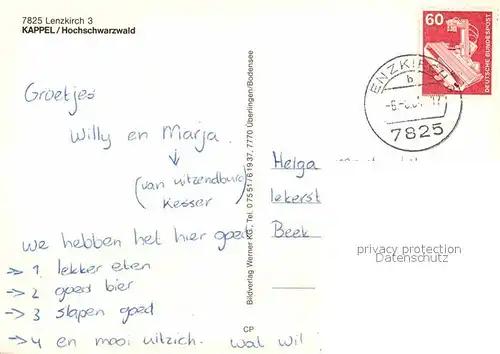 7825 Lenzkirch 3
KAPPEL / Hochschwarzwald
Groetjes
Willy en Marja.
(van uitzendburo
Kesser)
we hebben het hier goed
→ 1 lekker eten
→ 2 goed bier
→ 3 slapen goed
→ 4 en mooi uitzich. wal wil
Bildverlag Werner KG, Tel. 07551/61937, 7770 Überlingen/Bodensee
CP
60
DEUTSCHE BUNDESPOST
ENZKIRCH
b
7825
Helga
lekerst
Beek
privacy protection
Datenschutz